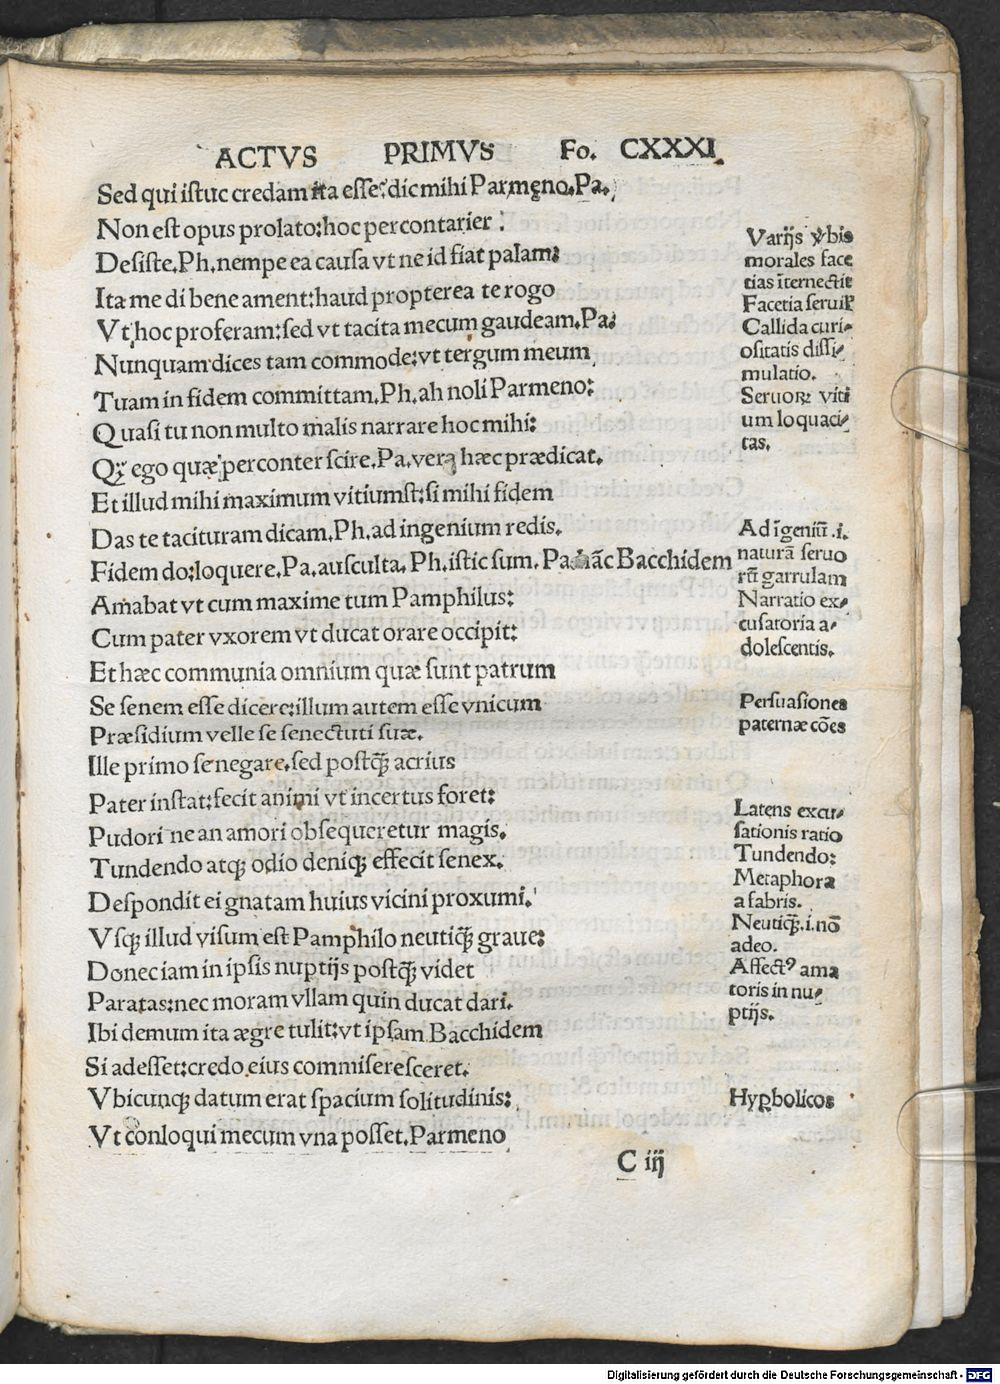 ACTVS PRIMVS Fo. CXXXI
Sed qui istuc credam ita esse: dic mihi Parmeno. Pa.
Non est opus prolato: hoc percontarier:
Desiste. Ph. nempe ea causa vt ne id fiat palam:
Ita me di bene ament: haud propterea te rogo
Vt hoc proferam: sed vt tacita mecum gaudeam. Pa:
Nunquam dices tam commode: vt tergum meum
Tuam in fidem committam. Ph. ah noli Parmeno:
Quasi tu non multo malis narrare hoc mihi:
Qꝫ ego quæ perconter scire. Pa. vera hæc prædicat.
Et illud mihi maximum vitiumst: si mihi fidem
Das te tacituram dicam. Ph. ad ingenium redis.
Fidem do: loquere. Pa. ausculta. Ph. istic sum. Pa. hāc Bacchidem
Amabat vt cum maxime tum Pamphilus:
Cum pater vxorem vt ducat orare occipit:
Et hæc communia omnium quæ sunt patrum
Se senem esse dicere: illum autem esse vnicum
Præsidium velle se senectuti suæ.
Ille primo se negare. sed postꝗ̃ acrius
Pater instat: fecit animi vt incertus foret:
Pudori ne an amori obsequeretur magis.
Tundendo atqꝫ odio deniqꝫ effecit senex.
Despondit ei gnatam huius vicini proxumi.
Vsqꝫ illud visum est Pamphilo neutiꝗ̃ graue:
Donec iam in ipsis nuptijs postꝗ̃ videt
Paratas: nec moram vllam quin ducat dari.
Ibi demum ita ægre tulit: vt ipsam Bacchidem
Si adesset: credo eius commiseresceret.
Vbicunqꝫ datum erat spacium solitudinis:
Vt conloqui mecum vna posset. Parmeno
C iij
Varijs v̓bis
morales face
tias īternectit
Facetia seruil'
Callida curi-
ositatis dissi-
mulatio.
Seruoꝝ viti
um loquaci-
tas.
Ad īgeniū .i.
naturā seruo
rū garrulam
Narratio ex-
cusatoria a-
dolescentis.
Persuasiones
paternæ cōes
Latens excu-
sationis ratio
Tundendo:
Metaphora
a fabris.
Neutiꝗ̃. i. nō
adeo.
Affectꝰ ama
toris in nu-
ptijs.
Hyꝑbolicos
Digitalisierung gefördert durch die Deutsche Forschungsgemeinschaft - DFG